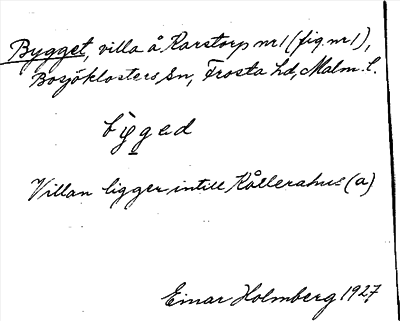 Bygget, villa å Karstorp nr 1 (fig. nr 1),
Bosjöklosters sn, Frosta hd, Malm. l.
bỳgəd
Villan ligger intill Kållerahus (a)
Einar Holmberg 1927